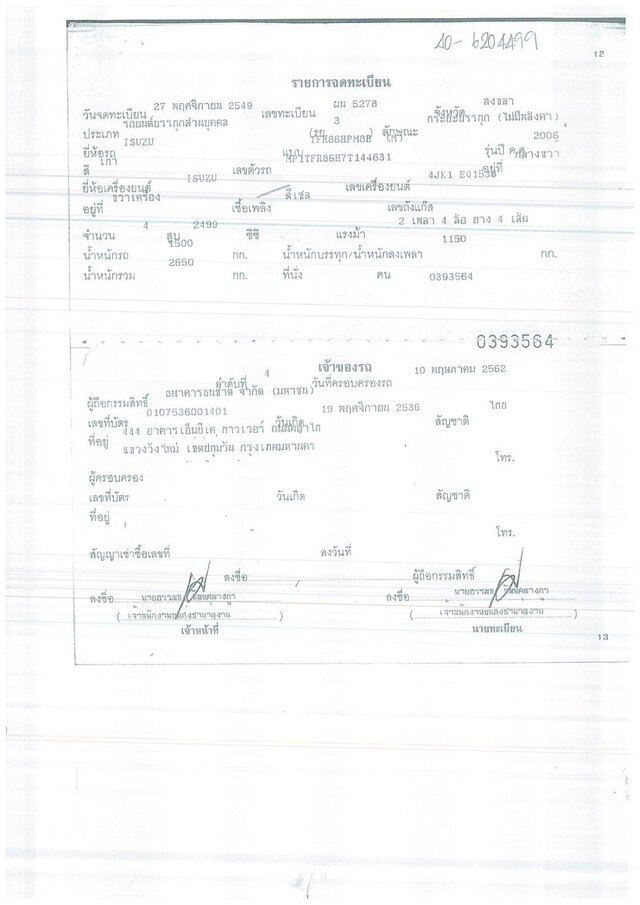 40-6204499
12
รายการจดทะเบียน
วันจดทะเบียน 27 พฤศจิกายน 2549 เลขทะเบียน ผน 5278 จังหวัด สงขลา
ประเภท รถยนต์บรรทุกส่วนบุคคล (รย. 3 ) ลักษณะ กระบะบรรทุก (ไม่มีหลังคา)
ยี่ห้อรถ ISUZU แบบ TFR86HPM8B (M) รุ่นปี ค.ศ. 2006
สี เทา เลขตัวรถ MP1TFR86H7T144631 อยู่ที่ กลางขวา
ยี่ห้อเครื่องยนต์ ISUZU เลขเครื่องยนต์ 4JK1
อยู่ที่ ขวาเครื่อง เชื้อเพลิง ดีเซล เลขถังแก๊ส
จำนวน 4 สูบ 2499 ซีซี แรงม้า 2 เพลา 4 ล้อ ยาง 4 เส้น
น้ำหนักรถ 1500 กก. น้ำหนักบรรทุก/น้ำหนักลงเพลา 1150 กก.
น้ำหนักรวม 2650 กก. ที่นั่ง คน 0393564
0393564
เจ้าของรถ
ลำดับที่ 4 วันที่ครอบครองรถ 10 พฤษภาคม 2562
ผู้ถือกรรมสิทธิ์ ธนาคารธนชาต จำกัด (มหาชน)
เลขที่บัตร 0107536001401 วันเกิด 19 พฤศจิกายน 2536 สัญชาติ ไทย
ที่อยู่ 444 อาคารเอ็มบีเค ทาวเวอร์ ถนนพญาไท
แขวงวังใหม่ เขตปทุมวัน กรุงเทพมหานคร
โทร.
ผู้ครอบครอง
เลขที่บัตร วันเกิด สัญชาติ
ที่อยู่
โทร.
สัญญาเช่าซื้อเลขที่ ลงวันที่
ลงชื่อ ผู้ถือกรรมสิทธิ์
ลงชื่อ ลงชื่อ
(เจ้าพนักงานขนส่งชำนาญงาน) (เจ้าพนักงานขนส่งชำนาญงาน)
เจ้าหน้าที่ นายทะเบียน
13